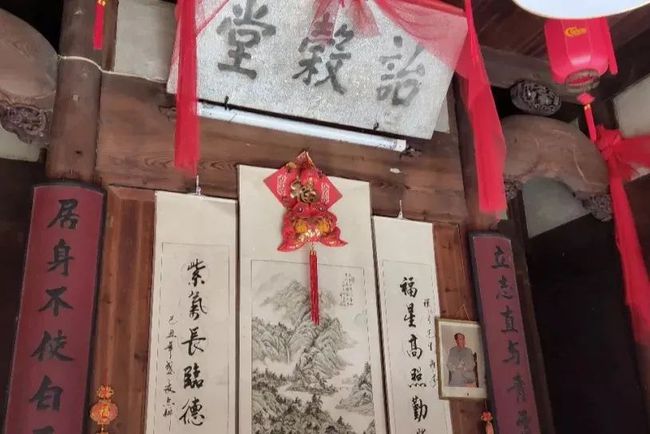 詒穀堂
立志直与青
福星高照勤
福
紫氣長臨德
居身不使白